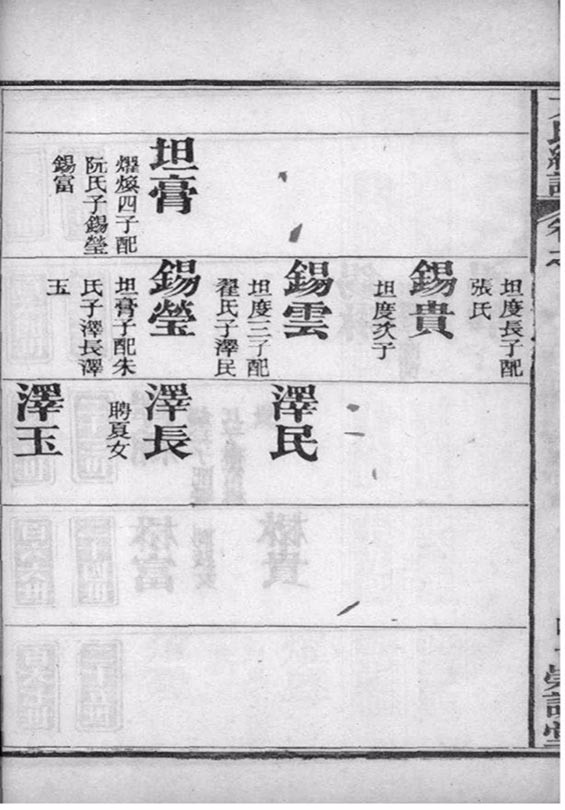 坦膏
燿煥四子配
阮氏子錫瑩
錫富
坦度長子配
張氏
錫貴
坦度次子
錫雲
坦度三子配
翟氏子澤民
錫瑩
坦膏子配朱
氏子澤長澤
玉
澤民
澤長
聘夏女
澤玉